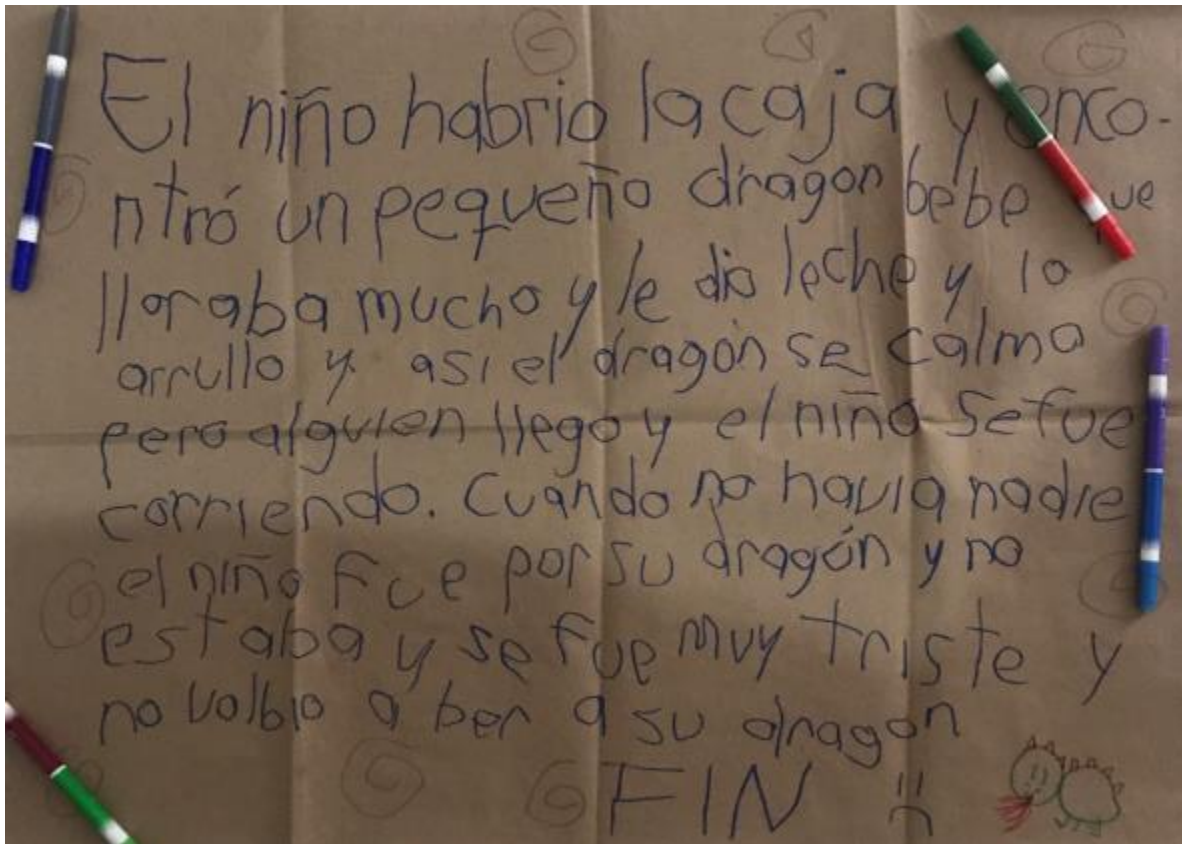 El niño habrio la caja y enco-
ntró un pequeño dragon bebe que
lloraba mucho y le dio leche y lo
arrullo y asi el dragón se calmo
pero alguien llego y el niño se fue
corriendo. Cuando no havia nadie
el niño fue por su dragón y no
estaba y se fue muy triste y
no volbio a ber a su dragon
FIN :(